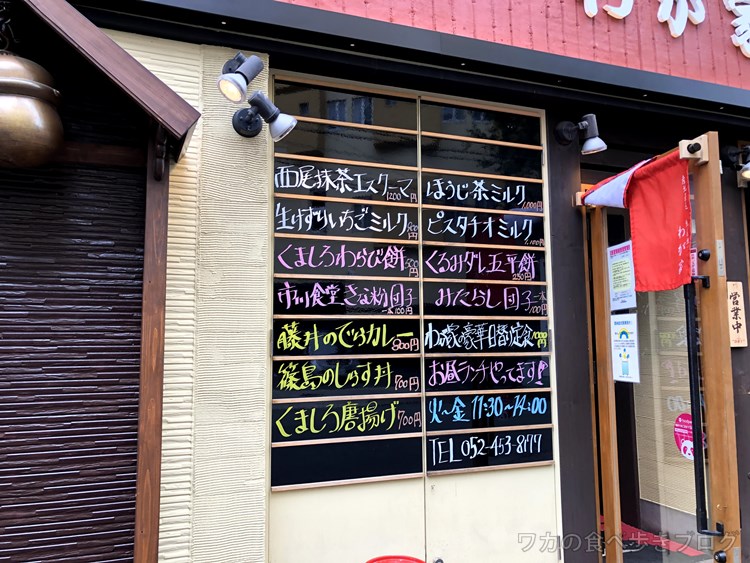 西尾抹茶エスプーマ 1200円
生けずりいちごミルク 900円
くましろわらび餅 500円
市川食堂きな粉団子 一本100円
藤井のでらカレー 800円
篠島のしらす丼 900円
くましろ唐揚げ 700円
ほうじ茶ミルク 1,000円
ピスタチオミルク 1,100円
くるみダレ五平餅 250円
みたらし団子 一本100円
わが家の豪華日替り定食 1000円
お昼ランチやってます!!
火〜金 11:30〜14:00
TEL 052-453-8177
営業中
ワカの食べ歩きブログ